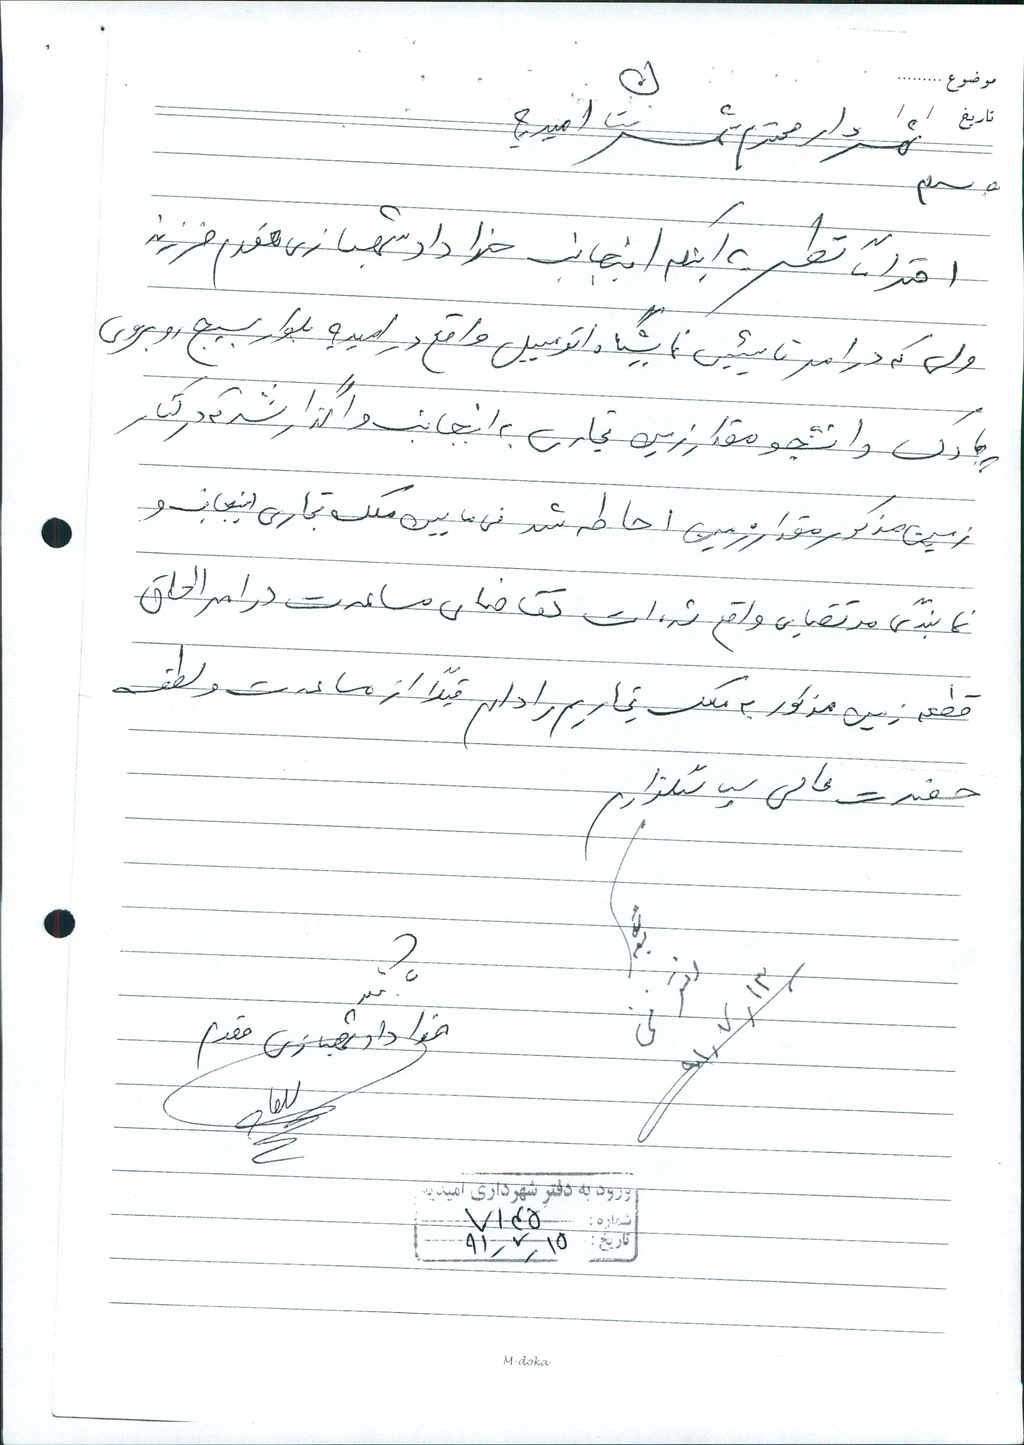 موضوع
تاریخ
شهردار محترم شهرستان امیدیه
سلام
احتراماً نظر به اینکه اینجانب خداداد شهبازی مقدم فرزند
ولی که در امر تاسیس نمایشگاه اتومبیل واقع در امیدیه بلوار بسیج روبروی
پارک دانشجو مقدار زمین تجاری به اینجانب واگذار شده که در کنار
زمین مذکور مقدار زمین احاطه شد فی مابین ملک تجاری اینجانب و
نمایندگی مرتضایی واقع شده است تقاضای مساعدت در امر الحاق
قطعه زمین مذکور به ملک تجاریم را دارم قبلاً از مساعدت و لطف
حضرت عالی سپاسگذارم
فنی
۹۱/۷/۱۳
خداداد شهبازی مقدم
ورود به دفتر شهرداری امیدیه
شماره: ۷۱۴۵
تاریخ: ۹۱/۷/۱۵
M-doka